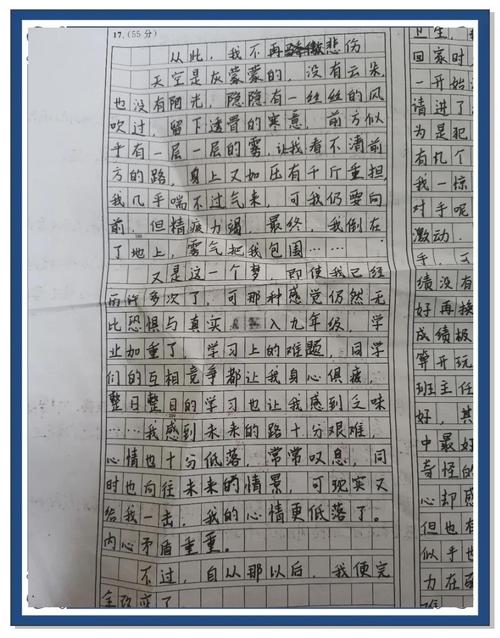 17.(55分)
从此，我不再悲伤
天空是灰蒙蒙的，没有云朵，
也没有阳光，隐隐有一丝丝的风
吹过，留下透骨的寒意。前方似
乎有一层一层的雾，让我看不清前
方的路，身上又如压有千斤重担，
我几乎喘不过气来，可我仍要向
前，但精疲力竭。最终，我倒在
了地上，雾气把我包围……
又是这一个梦，即使我已经
许多次了，可那种感觉仍然无
比恐惧与真实。入九年级，学
业加重了，学习上的难题，同学
们的互相竞争都让我身心俱疲，
整日整日的学习也让我感到乏味
……我感到未来的路十分艰难，
心情也十分低落，常常叹息，同
时也向往未来的情景，可现实又
给我一击，我的心情更低落了。
内心矛盾重重。
不过，自从那以后，我便完
全改变了
卫生，
回家时
一开始
请进了
为是犯
有几个
我一惊
对手呢
激动.
手，可
绩没有
好再换
成绩极
算开玩
班主任
好，其
中最好
奇怪的
心却感
但也有
似乎也
力在